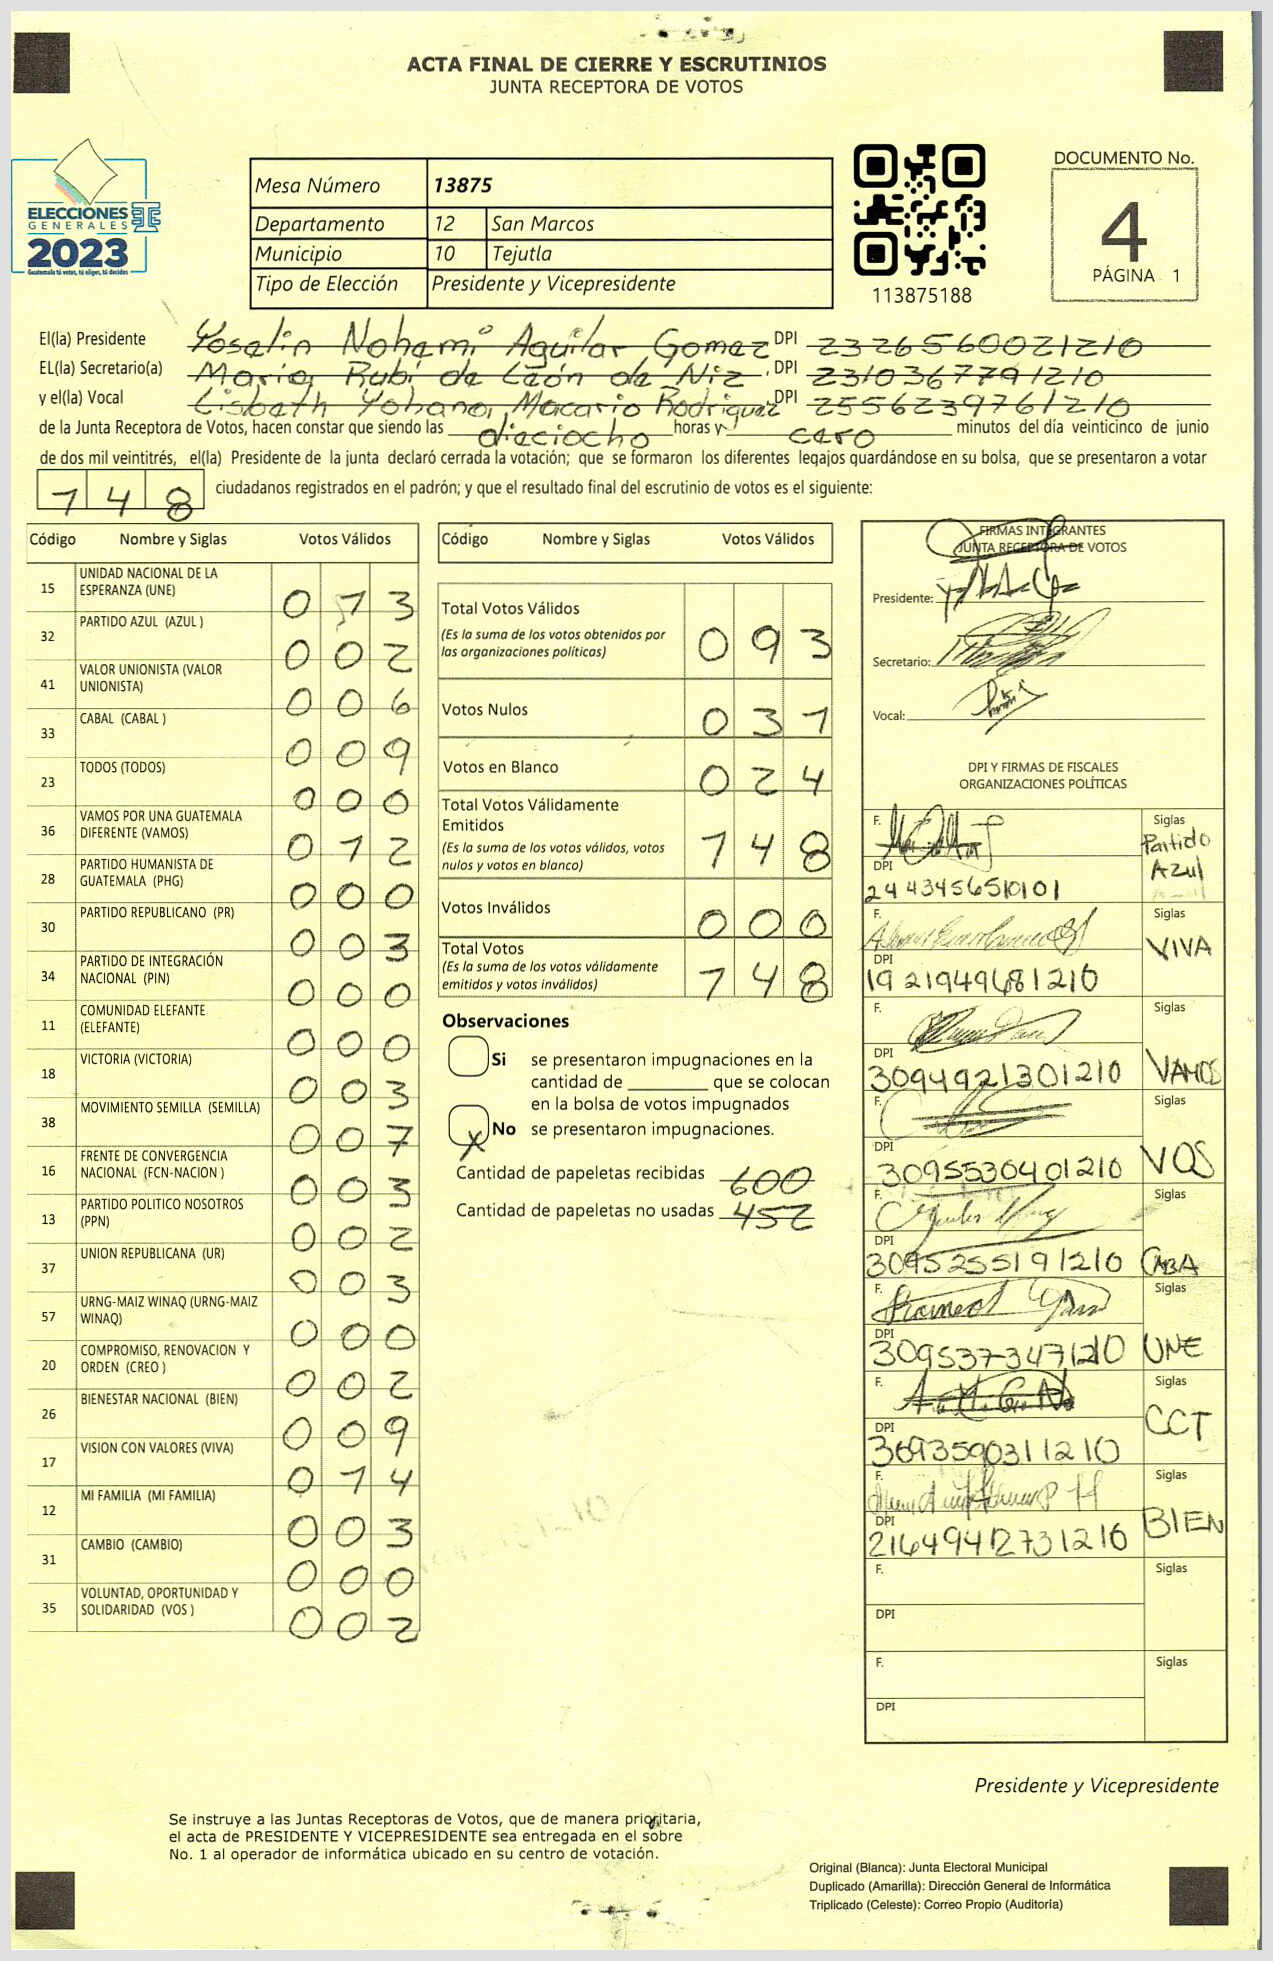 ACTA FINAL DE CIERRE Y ESCRUTINIOS
JUNTA RECEPTORA DE VOTOS
ELECCIONES
GENERALES
2023
Guatemala tú votas, tú eliges, tú decides
Mesa Número 13875
Departamento 12 San Marcos
Municipio 10 Tejutla
Tipo de Elección Presidente y Vicepresidente
113875188
DOCUMENTO No.
4
PÁGINA 1
El(la) Presidente Yoselin Nohemi Aguilar Gomez DPI 2326560021210
EL(la) Secretario(a) Maria Rubí de León de Niz, DPI 2310367791210
y el(la) Vocal Lisbeth Yohana Macario Rodriguez DPI 2556239761210
de la Junta Receptora de Votos, hacen constar que siendo las dieciocho horas y cero minutos del día veinticinco de junio
de dos mil veintitrés, el(la) Presidente de la junta declaró cerrada la votación; que se formaron los diferentes legajos guardándose en su bolsa, que se presentaron a votar
148 ciudadanos registrados en el padrón; y que el resultado final del escrutinio de votos es el siguiente:
Código Nombre y Siglas Votos Válidos
15 UNIDAD NACIONAL DE LA ESPERANZA (UNE) 013
32 PARTIDO AZUL (AZUL ) 002
41 VALOR UNIONISTA (VALOR UNIONISTA) 006
33 CABAL (CABAL ) 009
23 TODOS (TODOS) 000
36 VAMOS POR UNA GUATEMALA DIFERENTE (VAMOS) 012
28 PARTIDO HUMANISTA DE GUATEMALA (PHG) 000
30 PARTIDO REPUBLICANO (PR) 003
34 PARTIDO DE INTEGRACIÓN NACIONAL (PIN) 000
11 COMUNIDAD ELEFANTE (ELEFANTE) 000
18 VICTORIA (VICTORIA) 003
38 MOVIMIENTO SEMILLA (SEMILLA) 007
16 FRENTE DE CONVERGENCIA NACIONAL (FCN-NACION ) 003
13 PARTIDO POLITICO NOSOTROS (PPN) 002
37 UNION REPUBLICANA (UR) 003
57 URNG-MAIZ WINAQ (URNG-MAIZ WINAQ) 000
20 COMPROMISO, RENOVACION Y ORDEN (CREO ) 002
26 BIENESTAR NACIONAL (BIEN) 009
17 VISION CON VALORES (VIVA) 014
12 MI FAMILIA (MI FAMILIA) 003
31 CAMBIO (CAMBIO) 000
35 VOLUNTAD, OPORTUNIDAD Y SOLIDARIDAD (VOS ) 002
Código Nombre y Siglas Votos Válidos
Total Votos Válidos 093
(Es la suma de los votos obtenidos por
las organizaciones políticas)
Votos Nulos 031
Votos en Blanco 024
Total Votos Válidamente
Emitidos 148
(Es la suma de los votos válidos, votos
nulos y votos en blanco)
Votos Inválidos 000
Total Votos 148
(Es la suma de los votos válidamente
emitidos y votos inválidos)
Observaciones
Si se presentaron impugnaciones en la
cantidad de ________ que se colocan
en la bolsa de votos impugnados
X No se presentaron impugnaciones.
Cantidad de papeletas recibidas 600
Cantidad de papeletas no usadas 452
FIRMAS INTEGRANTES
JUNTA RECEPTORA DE VOTOS
Presidente:
Secretario:
Vocal:
DPI Y FIRMAS DE FISCALES
ORGANIZACIONES POLÍTICAS
F. Siglas Partido Azul
DPI 2443456510101
F. Siglas VIVA
DPI 1921949681210
F. Siglas VAMOS
DPI 3094921301210
F. Siglas VOS
DPI 3095530401210
F. Siglas CABA
DPI 3095255191210
F. Siglas UNE
DPI 3095373471210
F. Siglas CCT
DPI 3693590311210
F. Siglas BIEN
DPI 216499412731210
F. Siglas
DPI
F. Siglas
DPI
Presidente y Vicepresidente
Se instruye a las Juntas Receptoras de Votos, que de manera prioritaria,
el acta de PRESIDENTE Y VICEPRESIDENTE sea entregada en el sobre
No. 1 al operador de informática ubicado en su centro de votación.
Original (Blanca): Junta Electoral Municipal
Duplicado (Amarilla): Dirección General de Informática
Triplicado (Celeste): Correo Propio (Auditoría)